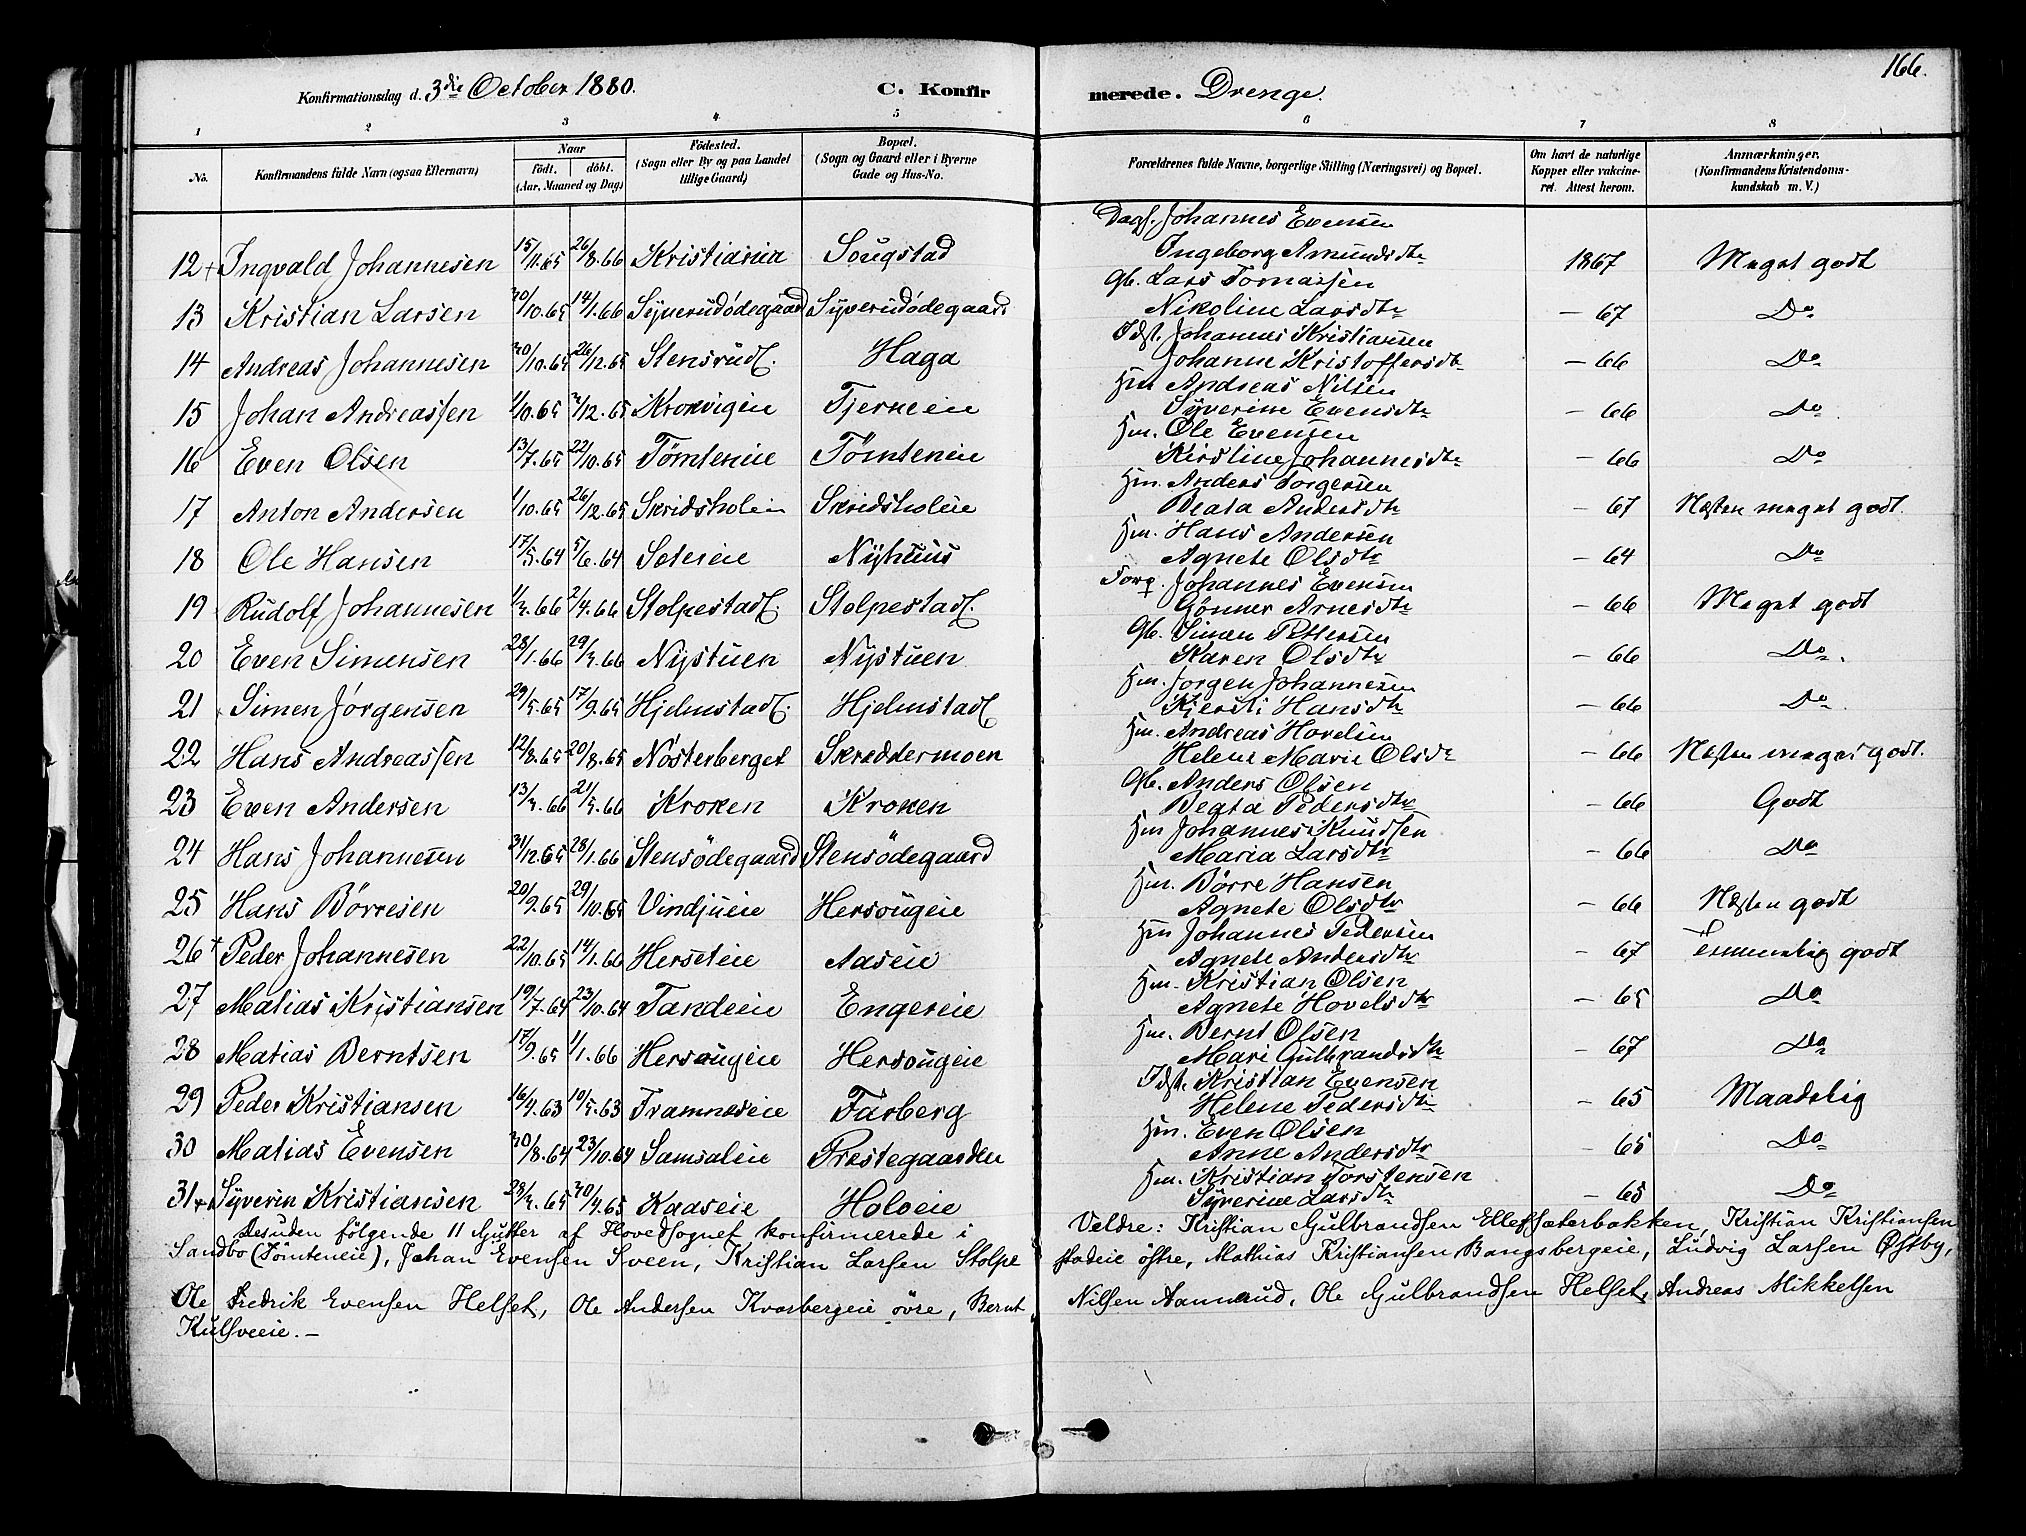 166.
Konfirmationsdag d. 3die October 1880. C. Konfirmerede. Drenge.
1 2 3 4 5 6 7 8
No. Konfirmandens fulde Navn (ogsaa Efternavn) Naar født. døbt. (Aar, Maaned og Dag) Födested. (Sogn eller By og paa Landet tillige Gaard) Bopæl. (Sogn og Gaard eller i Byerne Gade og Hus-No. Forældrenes fulde Navne, borgerlige Stilling (Næringsvei) og Bopæl. Om havt de naturlige Kopper eller vakcineret. Attest herom. Anmærkninger. (Konfirmandens Kristendomskundskab m. V.)
Dagf. Johannes Evensen
12 + Ingvald Johannesen 15/11.65 26/8.66 Kristiania Sougstad Ingeborg Amundsdtr 1867 Meget godt
Gb. Lars Tomassen
13 Kristian Larsen 30/10.65 14/1.66 Syverudødegaard Syverudødegaard Nikoline Larsdtr – 67 Do
Idst. Johannes Kristiansen
14 Andreas Johannesen 30/10.65 26/12.65 Stensrud Haga Johanne Kristoffersdtr – 66 Do
Hm Andreas Nilsen
15 Johan Andreassen 1/10.65 3/12.65 Krokvigeie Tjerneie Syverine Evensdtr – 66 Do
Hm. Ole Evensen
16 Even Olsen 13/7.65 22/10.65 Tømteneie Tømteneie Kirstine Johannesdtr – 66 Do
Hm. Anders Torgersen
17 Anton Andersen 1/10.65 26/12.65 Skridsholeie Skridsholeie Beata Andersdtr – 67 Næsten meget godt.
Hm. Hans Andersen
18 Ole Hansen 17/5.64 5/6.64 Seteie Nyhuus Agnete Olsdtr – 64 Do
Johannes Evensen
19 Rudolf Johannesen 1/3.66 2/4.66 Stolpestad Stolpestad Gønner Arnesdtr – 66 Meget godt
Gb. Simen Pettersen
20 Even Simensen 28/1.66 29/3.66 Nystuen Nystuen Karen Olsdtr – 66 Do.
Hm. Jørgen Johannesen
21 Simen Jørgensen 29/5.65 17/9.65 Hjelmstad Hjelmstad Kjersti Hansdtr – 66 Do
Hm. Andreas Hovelsen
22 Hans Andreassen 12/8.65 20/8.65 Nösterberget Skreddermoen Helene Marie Olsdtr – 66 Næsten meget godt.
Gb. Anders Olsen
23 Even Andersen 13/3.66 21/5.66 Kroken Kroken Beata Pedersdtr – 66 Godt
Hm Johannes Knudsen
24 Hans Johannesen 31/12.65 28/1.66 Stensödegaard Stensödegaard Maria Larsdtr – 66 Do
Hm. Börre Hansen
25 Hans Börresen 20/9.65 29/10.65 Vindjueie Hersougeie Agnete Olsdtr – 66 Næsten godt
Hm Johannes Pedersen
26 + Peder Johannesen 22/10.65 14/1.66 Herseteie Aaseie Agnete Andersdtr – 67 Temmelig godt
Hm. Kristian Olsen
27 Matias Kristiansen 19/7.64 23/10.64 Tandeeie Engereie Agnete Hovelsdtr – 65 Do
Hm. Bernt Olsen
28 Matias Berntsen 17/9.65 1/1.66 Hersougeie Hersougeie Mari Gulbrandsdtr – 67 Do
Idst. Kristian Evensen
29 Peder Kristiansen 16/4.63 10/5.63 Framneseie Farberg Helene Pedersdtr – 65 Maadelig
Hm. Even Olsen
30 Matias Evensen 30/8.64 23/10.64 Samsaleie Prestegaarden Anne Andersdtr – 65 Do
Hm. Kristian Torstensen
31 + Syverin Kristiansen 28/3.65 30/4.65 Kaaseie Holoeie Syverine Larsdtr – 65 Do
Desuden fölgende 11 Gutter af Hovedsognet konfirmerede i Veldre: Kristian Gulbrandsen Ellefsæterbakken, Kristian Kristiansen
Sandbo (Tömteneie), Johan Evensen Sveen, Kristian Larsen Stolpestadeie östre, Mathias Kristiansen Bangsbergeie, Ludvig Larsen Østby,
Ole Fredrik Evensen Helset, Ole Andersen Kvarbergeie övre, Bernt Nilsen Aamrud, Ole Gulbrandsen Helset, Andreas Mikkelsen
Kulsveeie. –